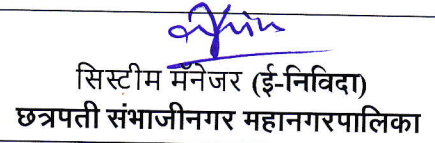 सिस्टीम मॅनेजर (ई-निविदा)
छत्रपती संभाजीनगर महानगरपालिका